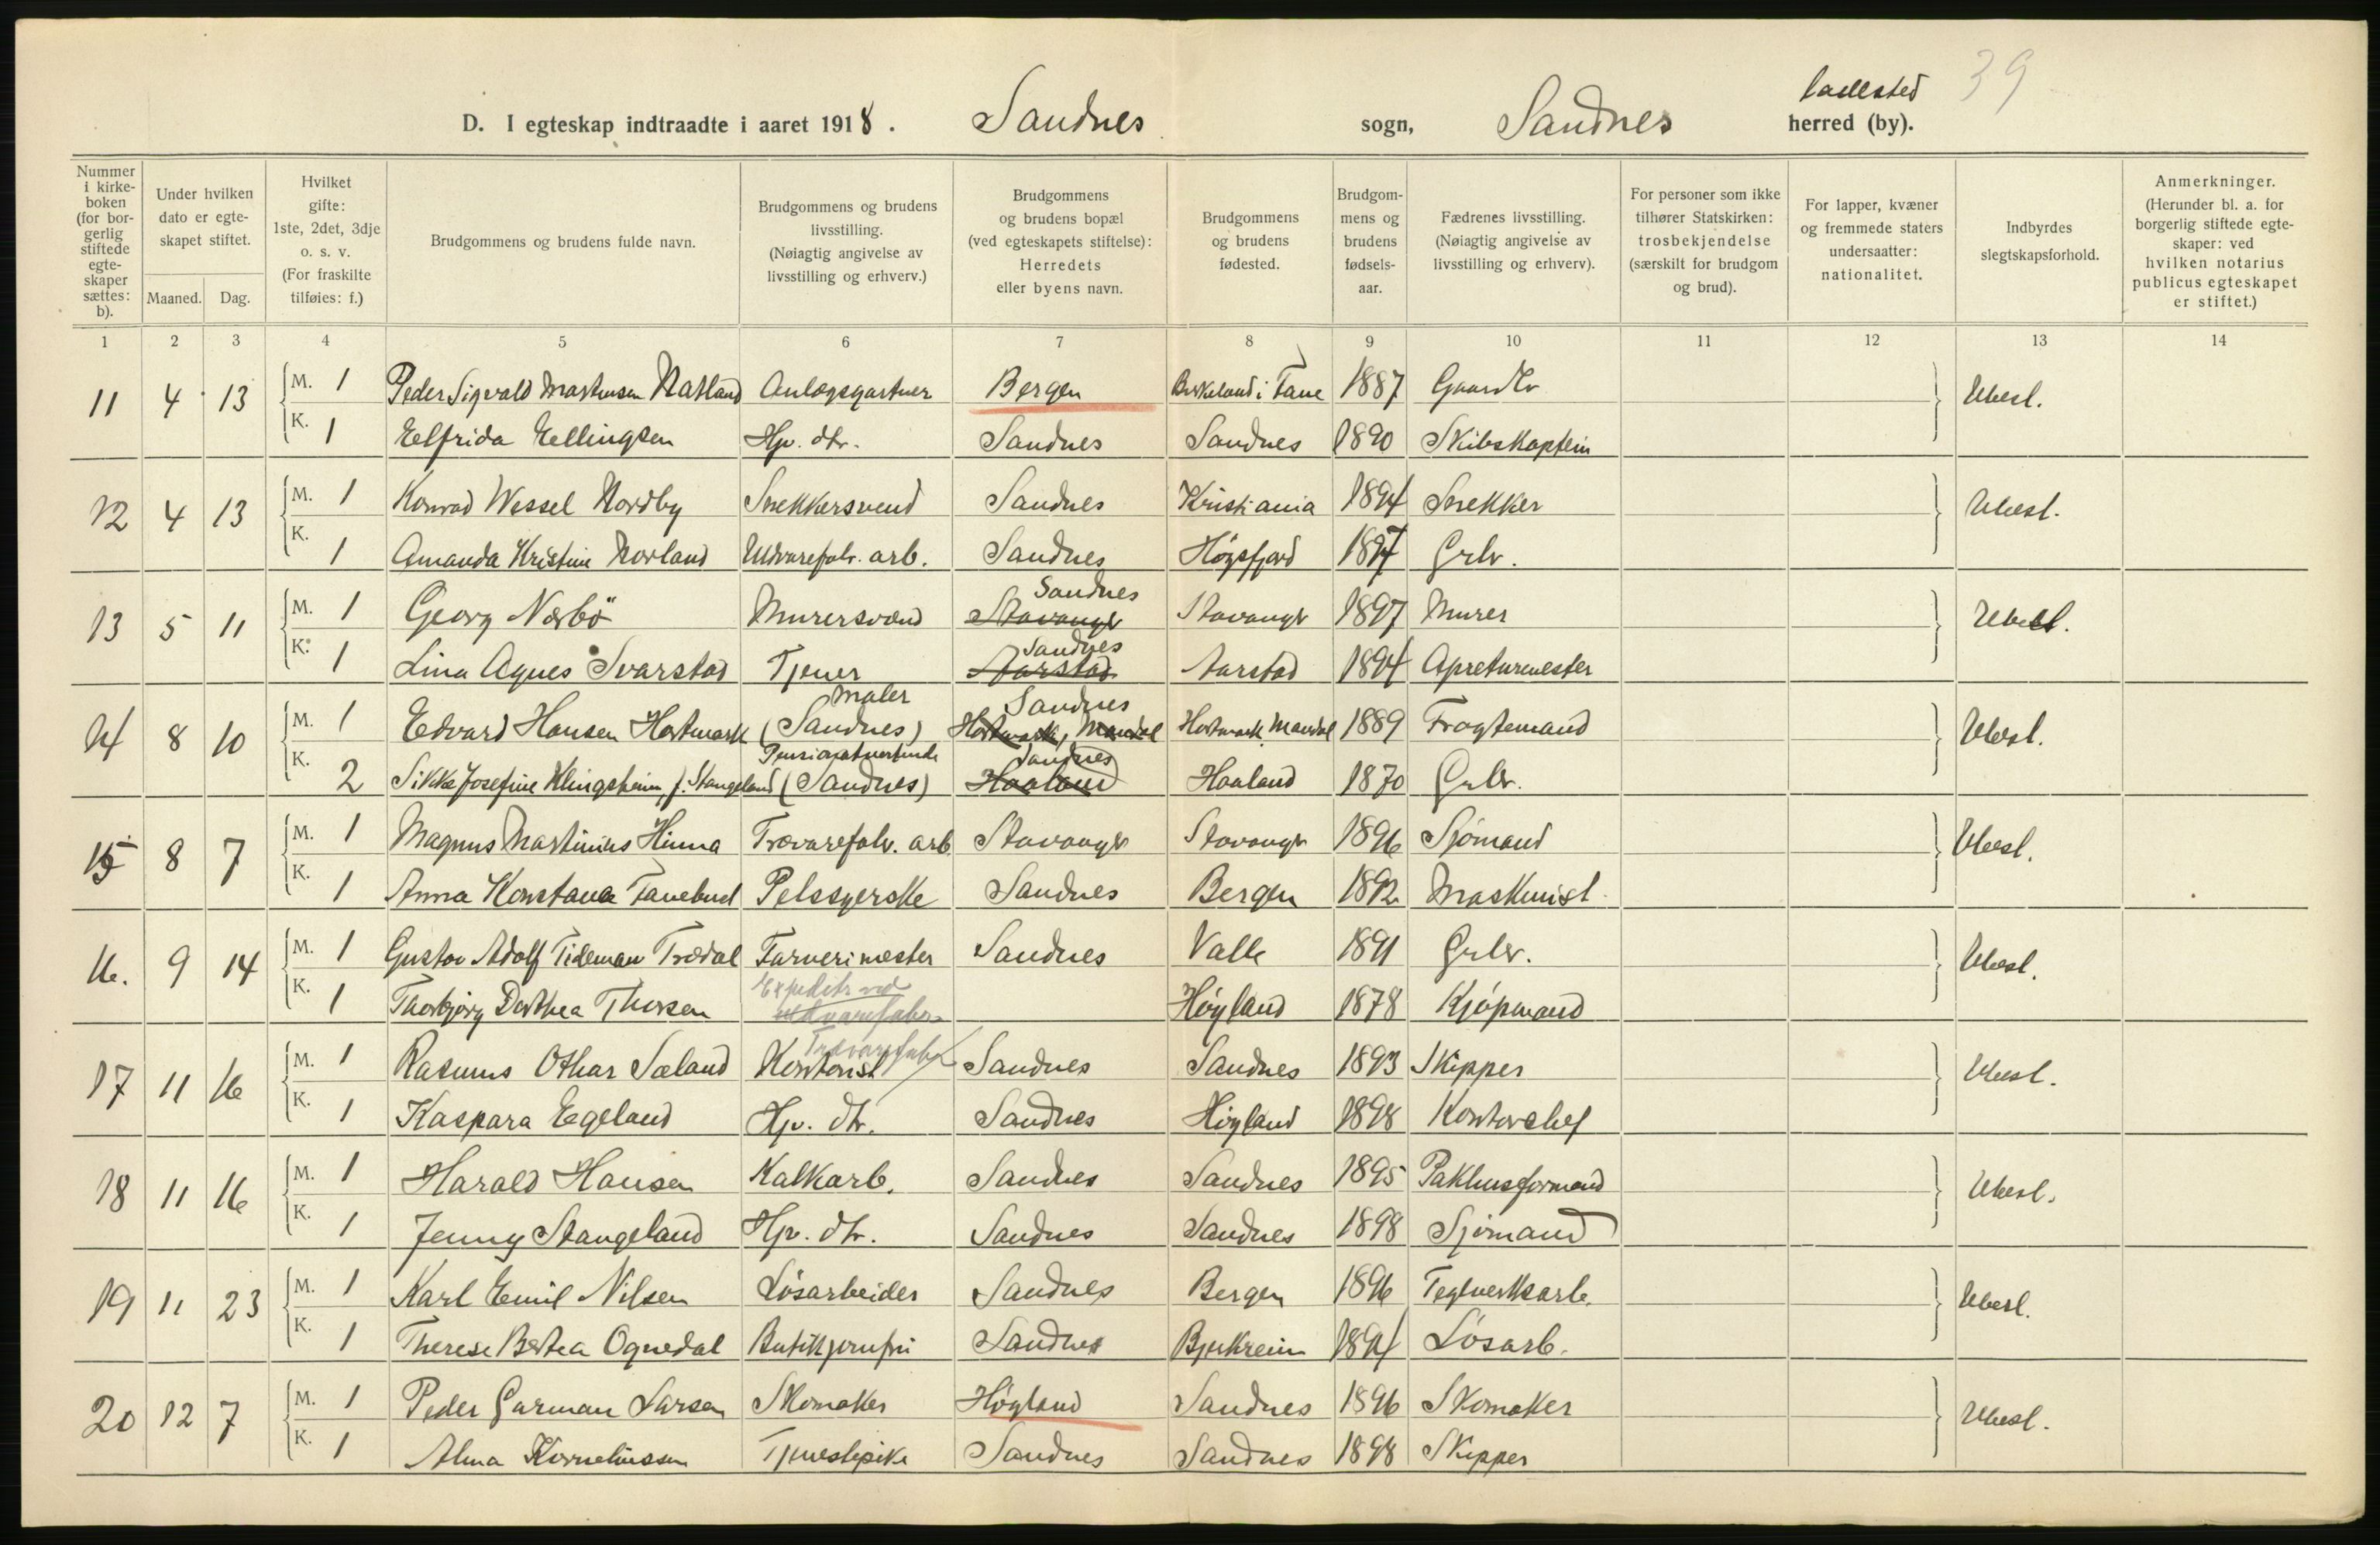 39
ladested
D. I egteskap indtraadte i aaret 1918. Sandnes sogn, Sandnes herred (by).
Nummer i kirke-boken (for bor-gerlig stiftede egte-skaper sættes: b).
Under hvilken dato er egte-skapet stiftet.
Maaned. Dag.
Hvilket gifte: 1ste, 2det, 3dje o. s. v. (For fraskilte tilføies: f.)
Brudgommens og brudens fulde navn.
Brudgommens og brudens livsstilling. (Nøiagtig angivelse av livsstilling og erhverv.)
Brudgommens og brudens bopæl (ved egteskapets stiftelse): Herredets eller byens navn.
Brudgommens og brudens fødested.
Brudgom-mens og brudens fødsels-aar.
Fædrenes livsstilling. (Nøiagtig angivelse av livsstilling og erhverv).
For personer som ikke tilhører Statskirken: trosbekjendelse (særskilt for brudgom og brud).
For lapper, kvæner og fremmede staters undersaatter: nationalitet.
Indbyrdes slegtskapsforhold.
Anmerkninger. (Herunder bl. a. for borgerlig stiftede egte-skaper: ved hvilken notarius publicus egteskapet er stiftet.)
1 2 3 4 5 6 7 8 9 10 11 12 13 14
11 4 13 M. 1 Peder Sigvald Martinsen Natland Anlægsgartner Bergen Birkeland i Fane 1887 Gaardbr Ubesl.
K. 1 Elfrida Ellingsen Hjv. dtr. Sandnes Sandnes 1890 Skibskaptein
12 4 13 M. 1 Konrad Wessel Nordby Snekkersvend Sandnes Kristiania 1894 Snekker Ubesl.
K. 1 Amanda Kristine Norland Uldvarefabr. arb. Sandnes Høgsfjord 1897 Grbr.
Sandnes
13 5 11 M. 1 Georg Nærbö Murersvend Stavanger Stavanger 1897 Murer Ubesl.
Sandnes
K. 1 Lina Agnes Svarstad Tjener Aarstad Aarstad 1894 Apreturmester
Maler Sandnes
14 8 10 M. 1 Edvard Hansen Hortmark (Sandnes) Hortmark, Mandal Hortmark, Mandal 1889 Fragtemand Ubesl.
Pensionatvertinde Sandnes
K. 2 Sikke Josefine Klingsheim, f. Stangeland (Sandnes) Haaland Haaland 1870 Grbr.
15 8 7 M. 1 Magnus Martinius Hinna Trævarefabr. arb Stavanger Stavanger 1896 Sjømand Ubesl.
K. 1 Anna Konstance Pelssyerske Sandnes Bergen 1892 Maskinist
16. 9 14 M. 1 Gustav Adolf Tideman Trædal Farverimester Sandnes Valle 1891 Grbr. Ubesl.
Expeditr ved
K. 1 Thorbjørg Dorthea Thorsen Uldvarefabr. Høyland 1878 Kjøpmand
Trævarefabr
17 11 16 M. 1 Rasmus Othar Sæland Kontorist Sandnes Sandnes 1893 Skipper Ubesl.
K. 1 Kaspara Egeland Hjv. dtr. Sandnes Høyland 1898 Kontorchef
18 11 16 M. 1 Harald Hansen Kalkarb. Sandnes Sandnes 1895 Pakhusformand Ubesl.
K. 1 Jenny Stangeland Hjv. dtr. Sandnes Sandnes 1898 Sjømand
19 11 23 M. 1 Karl Emil Nilsen Løsarbeider Sandnes Bergen 1896 Teglverksarb. Ubesl.
K. 1 Therese Berthea Ognedal Butikjomfru Sandnes Bjerkreim 1894 Løsarb.
20 12 7 M. 1 Peder Garman Larsen Skomaker Høyland Sandnes 1896 Skomaker Ubesl.
K. 1 Alma Korneliussen Tjenestepike Sandnes Sandnes 1898 Skipper